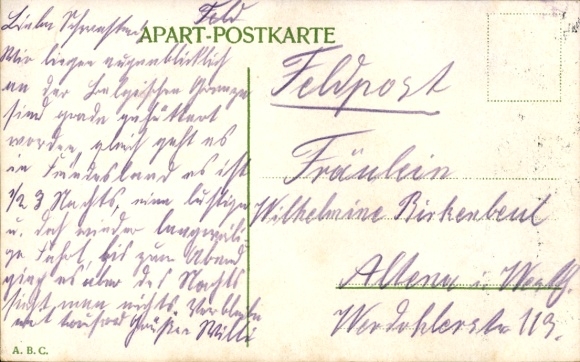 Feld
Liebe Schwester
APART-POSTKARTE
Wir liegen augenblicklich
an der Belgischen Grenze
sind grade gefüttert
worden, gleich geht es
in Feindesland es ist
1/2 3 Nachts, eine lustige
u. doch wieder langweili-
ge Fahrt, bis zum Abend
ging es aber des Nachts
sieht man nichts. Verbleibe
mit tausend Grüßen Willi
A. B. C.
Feldpost
Fräulein
Wilhelmine Birkenbeul
Altena i. Westf.
Werdohlerstr 119.